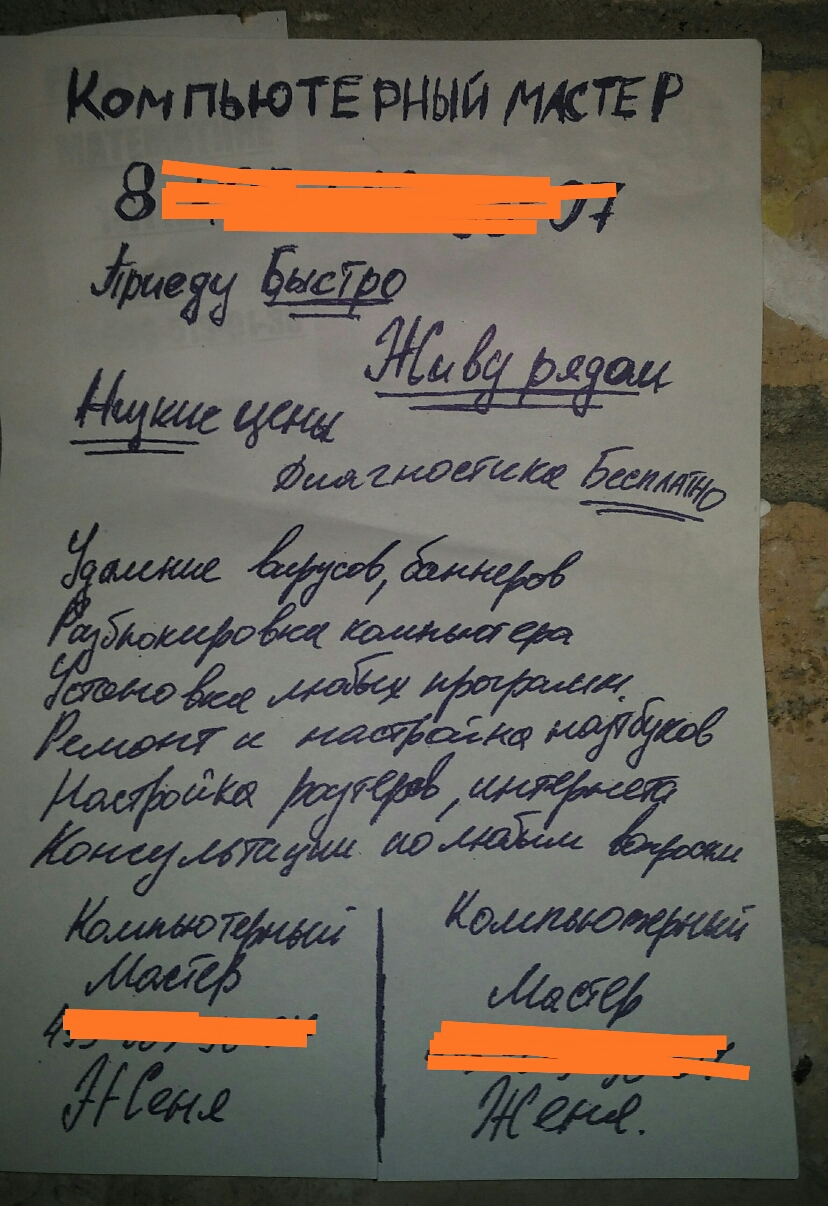 Компьютерный мастер
8 07
Приеду Быстро
Живу рядом
Низкие цены
Диагностика Бесплатно
Удаление вирусов, баннеров
Разблокировка компьютера
Установка любых программ.
Ремонт и настройка ноутбуков
Настройка роутеров, интернета
Консультации по любым вопросам
Компьютерный
Мастер
Женя
Компьютерный
Мастер
Женя.